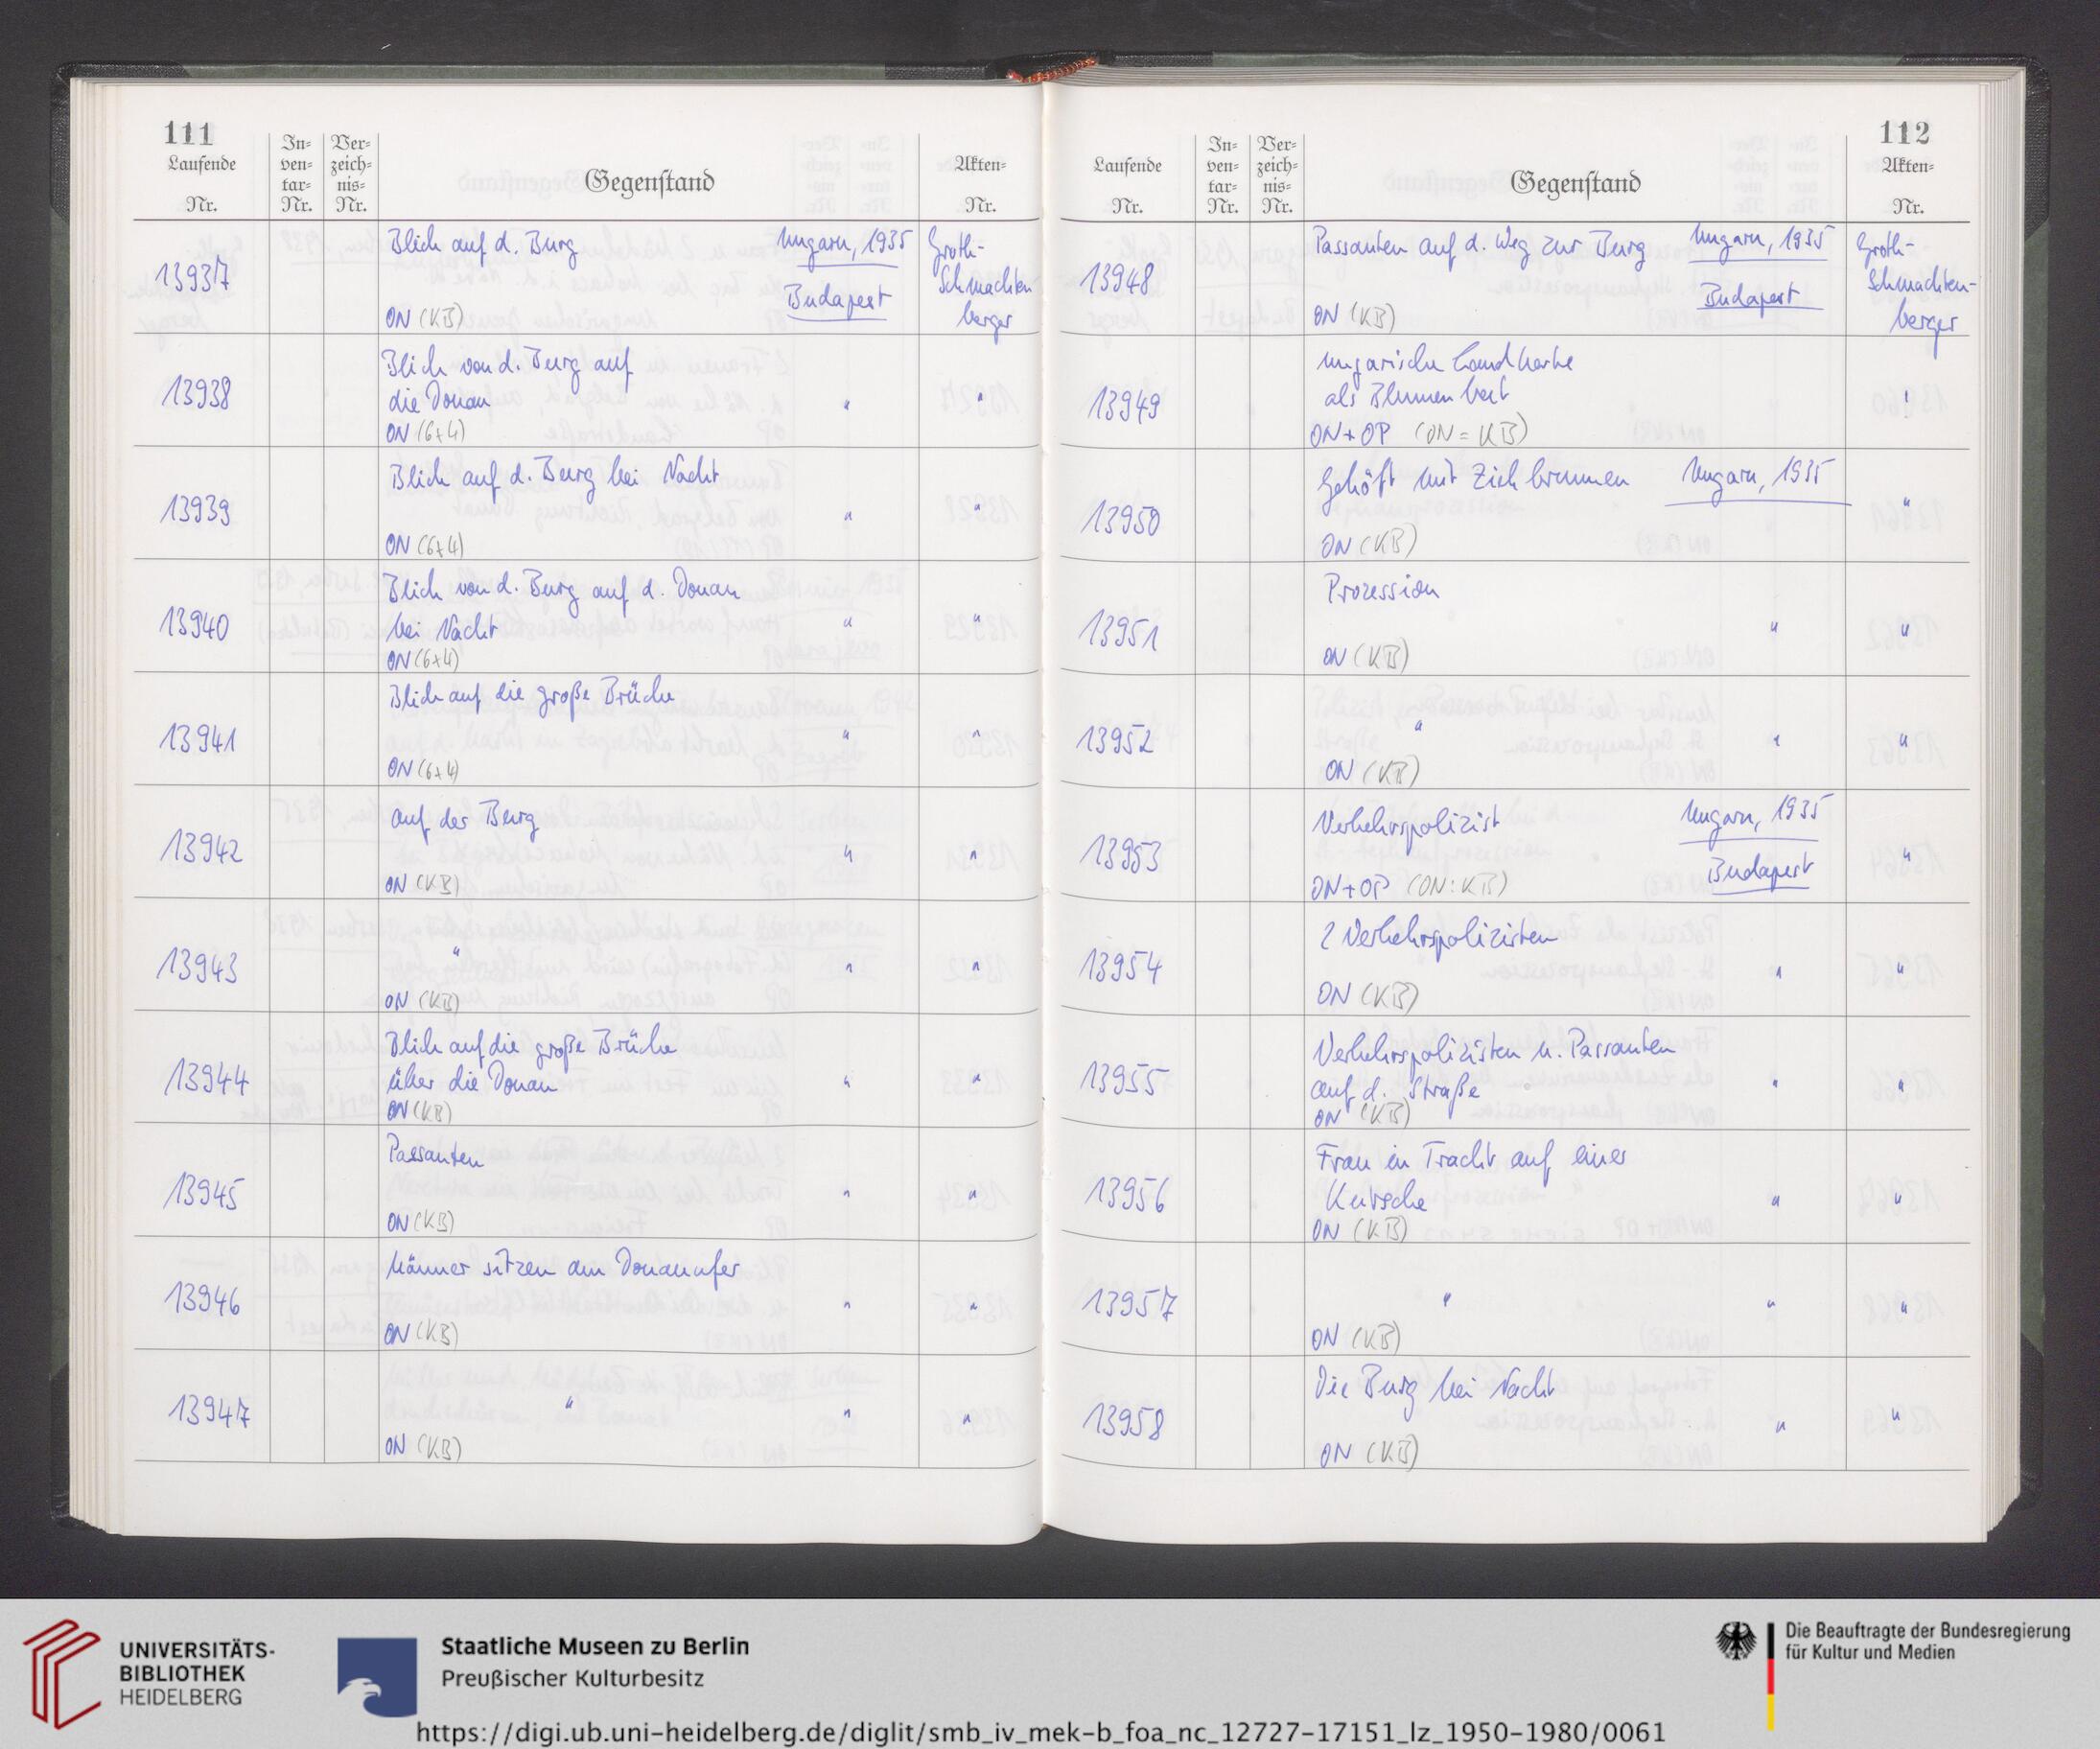 111
Laufende Nr.
In-
ven-
tar-
Nr.
Ver-
zeich-
nis-
Nr.
Gegenstand
Akten-
Nr.
13937
Blick auf d. Burg
Ungarn, 1935
Budapest
ON (KB)
Groth-
Schmachten
berger
13938
Blick von d. Burg auf
die Donau
"
"
ON (6x4)
13939
Blick auf d. Burg bei Nacht
"
"
ON (6x4)
13940
Blick von d. Burg auf d. Donau
bei Nacht
"
"
ON (6x4)
13941
Blick auf die große Brücke
"
"
ON (6x4)
13942
auf der Burg
"
"
ON (KB)
13943
"
"
"
ON (KB)
13944
Blick auf die große Brücke
über die Donau
"
"
ON (KB)
13945
Passanten
"
"
ON (KB)
13946
Männer sitzen am Donauufer
"
"
ON (KB)
13947
"
"
"
ON (KB)
112
Laufende
Nr.
In-
ven-
tar-
Nr.
Ver-
zeich-
nis-
Nr.
Gegenstand
Akten-
Nr.
13948
Passanten auf d. Weg zur Burg
Ungarn, 1935
Budapest
ON (KB)
Groth-
Schmachten-
berger
13949
ungarische Landkarte
als Blumenbeet
"
ON+OP (ON = KB)
13950
Gehöft mit Ziehbrunnen
Ungarn, 1935
"
ON (KB)
13951
Prozession
"
"
ON (KB)
13952
"
"
"
ON (KB)
13953
Verkehrspolizist
Ungarn, 1935
Budapest
"
ON+OP (ON: KB)
13954
2 Verkehrspolizisten
"
"
ON (KB)
13955
Verkehrspolizisten u. Passanten
auf d. Straße
"
"
ON (KB)
13956
Frau in Tracht auf einer
Kutsche
"
"
ON (KB)
13957
"
"
"
ON (KB)
13958
Die Burg bei Nacht
"
"
ON (KB)
UNIVERSITÄTS-
BIBLIOTHEK
HEIDELBERG
Staatliche Museen zu Berlin
Preußischer Kulturbesitz
Die Beauftragte der Bundesregierung
für Kultur und Medien
https://digi.ub.uni-heidelberg.de/diglit/smb_iv_mek-b_foa_nc_12727-17151_lz_1950-1980/0061